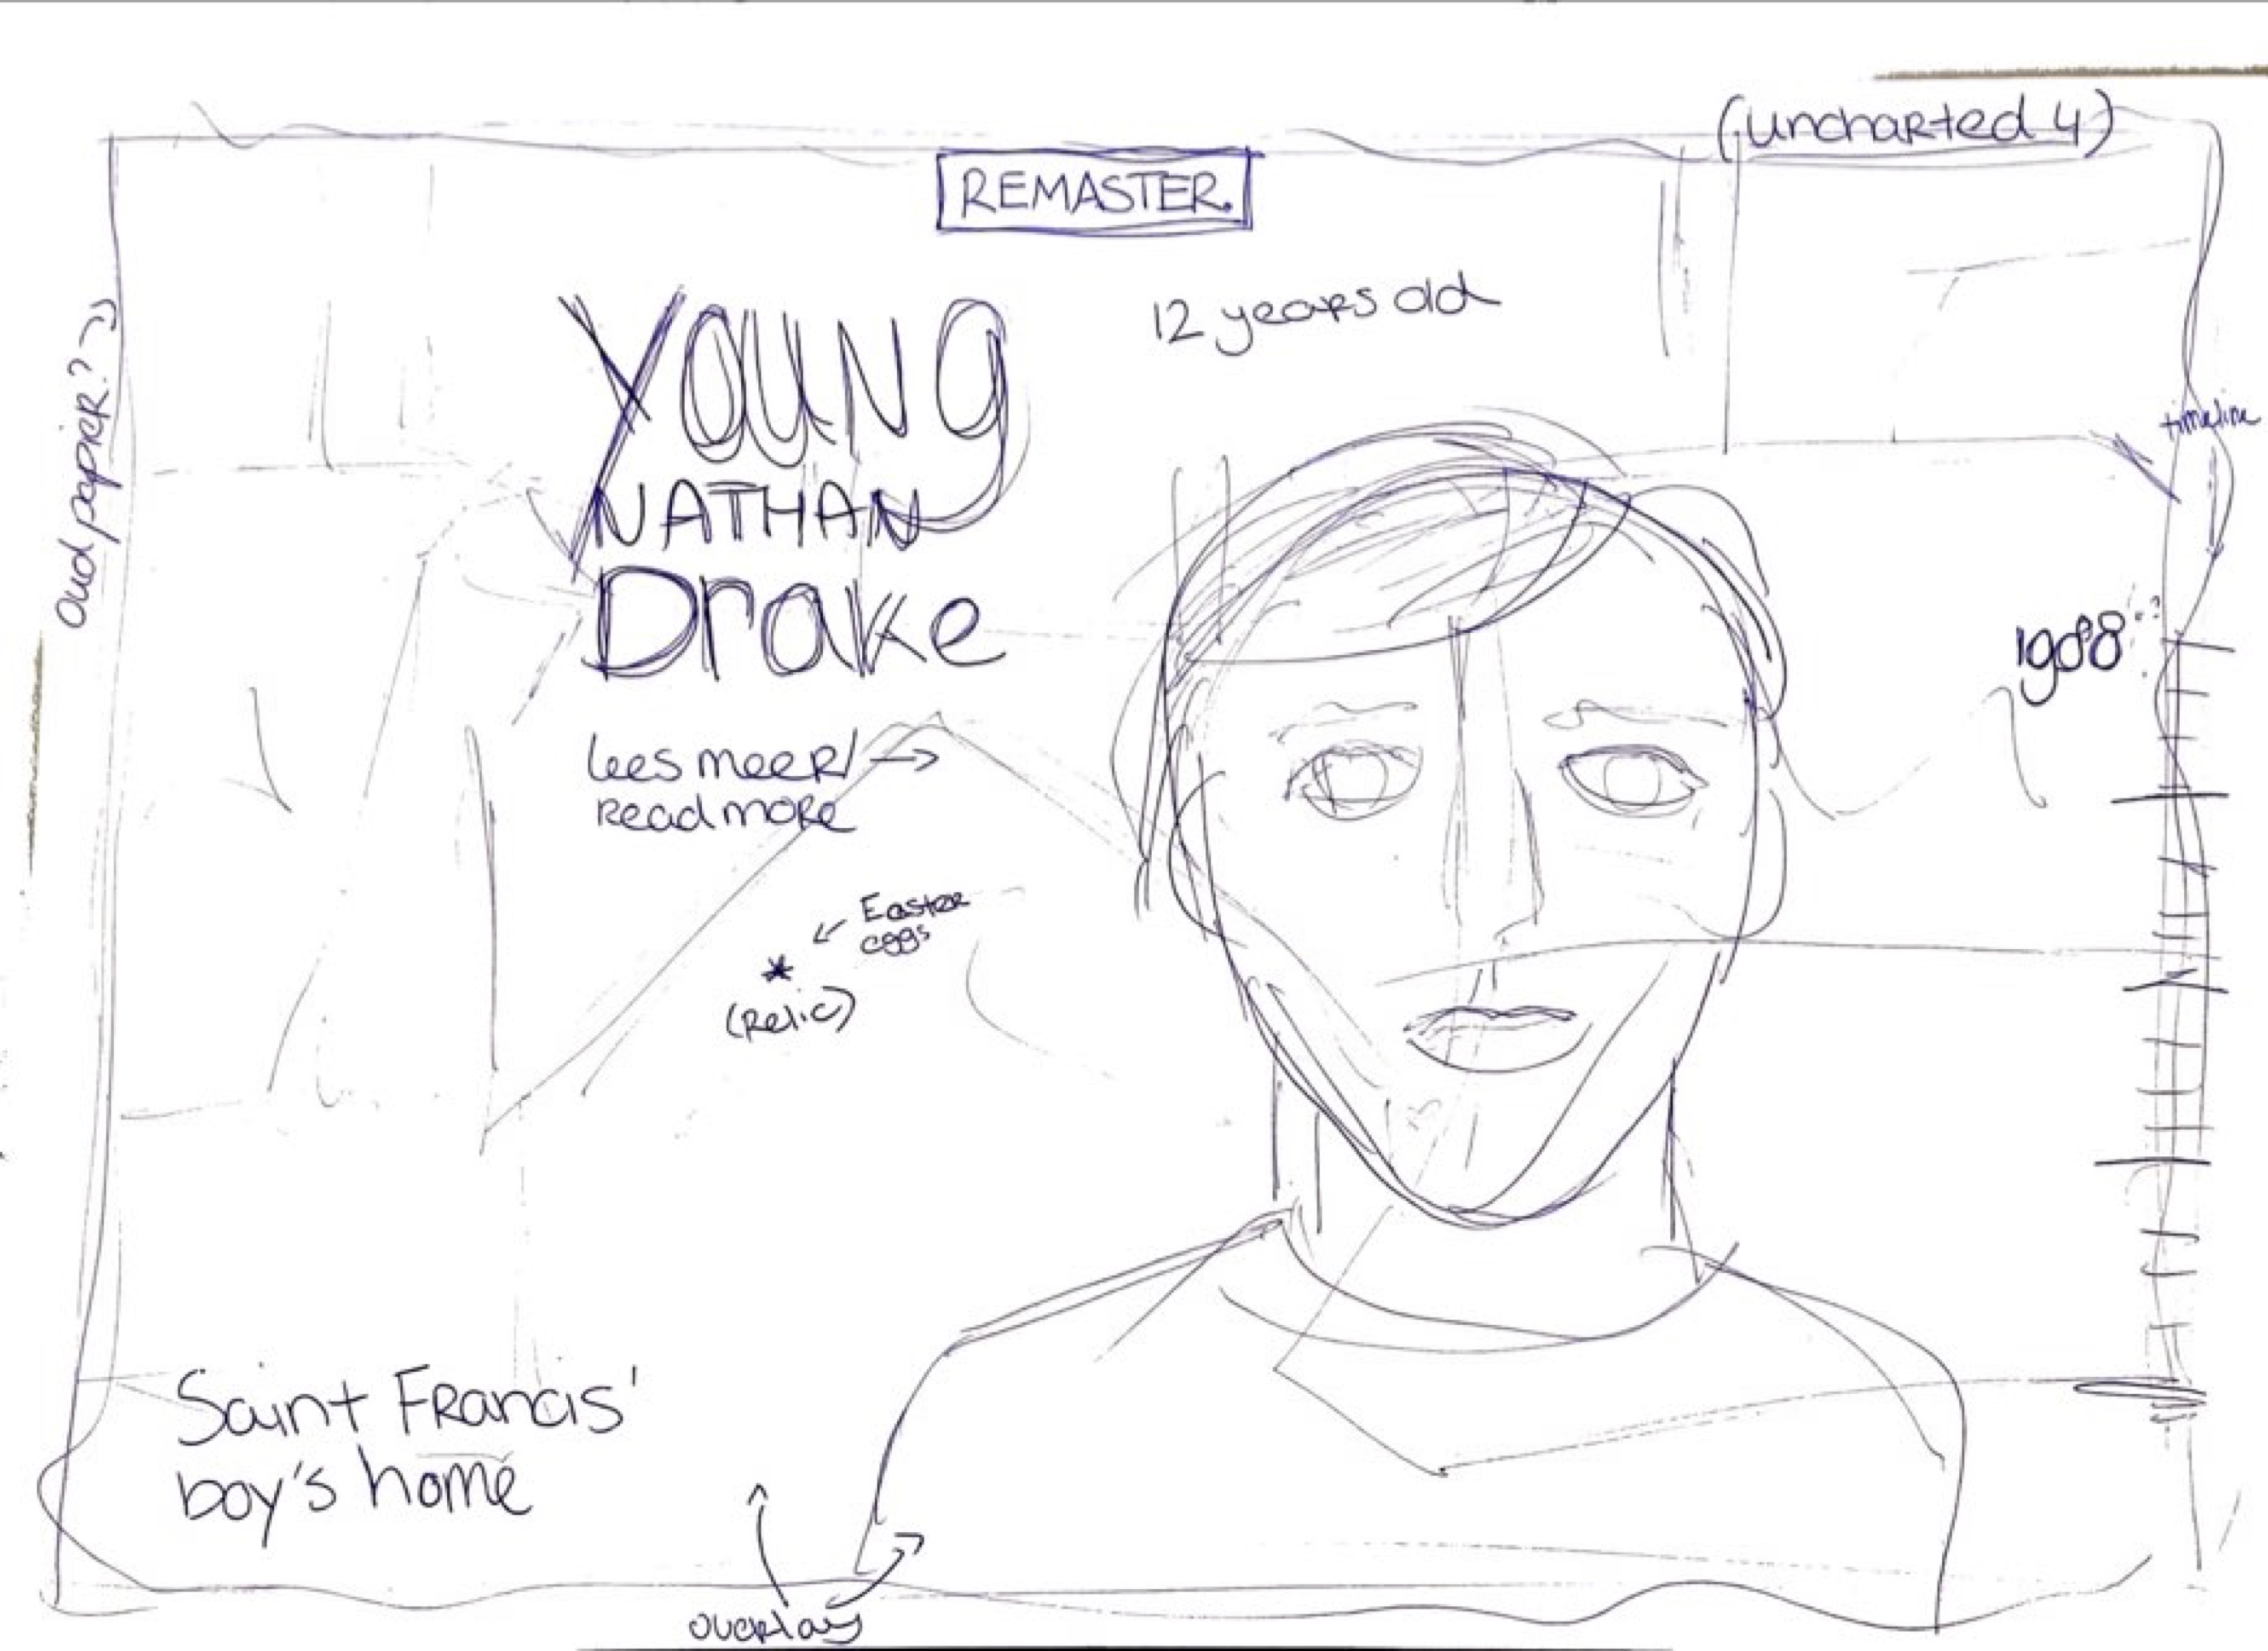 (uncharted 4)
REMASTER.
12 years old
Young
NATHAN
Drake
Oud papier?
timeline
1988
lees meer/ →
Read more
← Easter
eggs
*
(Relic)
Saint Francis'
boy's home
overlay